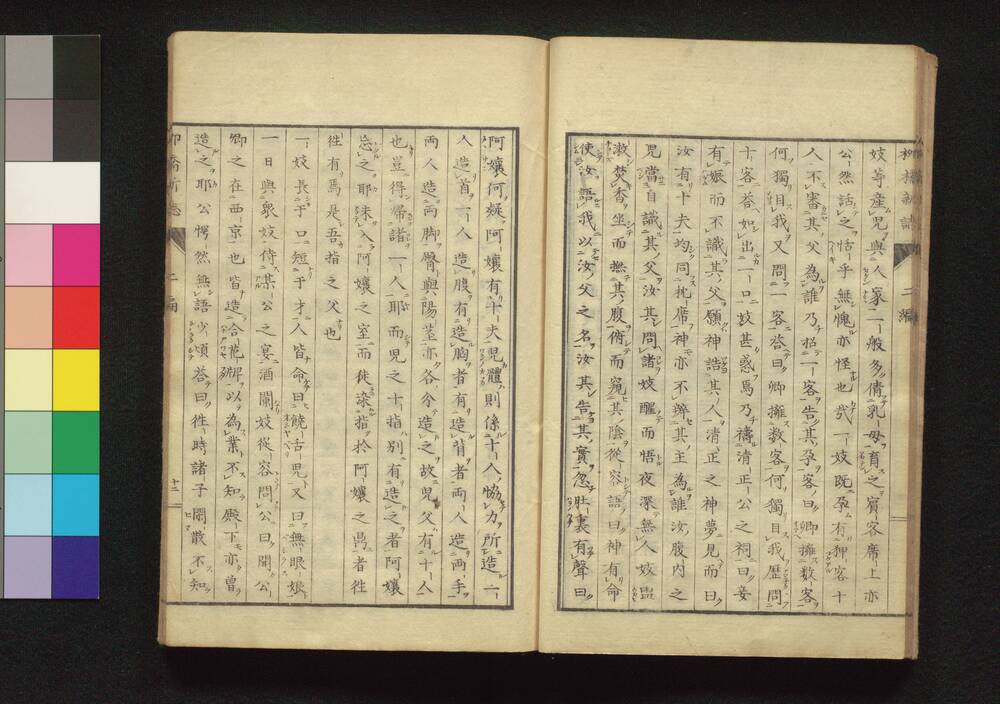 柳橋新誌 二編
妓等產兒與人家一般多倩乳母育之賓客席上亦
公然話之恬乎無愧亦怪也哉一妓既孕有狎客十
人不審其父為誰乃招一客告其孕客曰卿擁數客
何獨目我又問一客答曰卿擁數客何獨目我歷問
十客答如出一口妓甚惑焉乃禱清正公之祠曰妾
有娠而不識其父願神誥其人清正之神夢見而曰
汝有十夫均同枕席神亦不辨其主為誰汝腹内之
兒當自識其父汝其問諸妓醒而悟夜深無人妓盥
漱焚香坐而撫其腹俯而窺其陰從容語曰神有命
使汝語我以汝父之名汝其告其實忽肚裏有聲曰
阿孃何疑阿孃有十夫兒體則係十人協力所造一
人造首一人造腹有造胸者有造背者兩人造兩手
兩人造兩脚臀與陽莖亦各分造之故兒父有十人
也豈得歸諸一人耶而兒之十指別有造之者阿孃
忘之耶未入阿孃之室而徒染指於阿孃之鼎者往
往有焉是吾指之父也
一妓長于口短于才人皆命曰饒舌兒又曰無眼娘
一日與衆妓侍某公之宴酒闌妓從容問公曰聞公
卿之在西京也皆造合花牌以為業不知殿下亦曾
造之耶公愕然無語少頃答曰往時諸子閑散不知
柳橋新誌 二編 十三